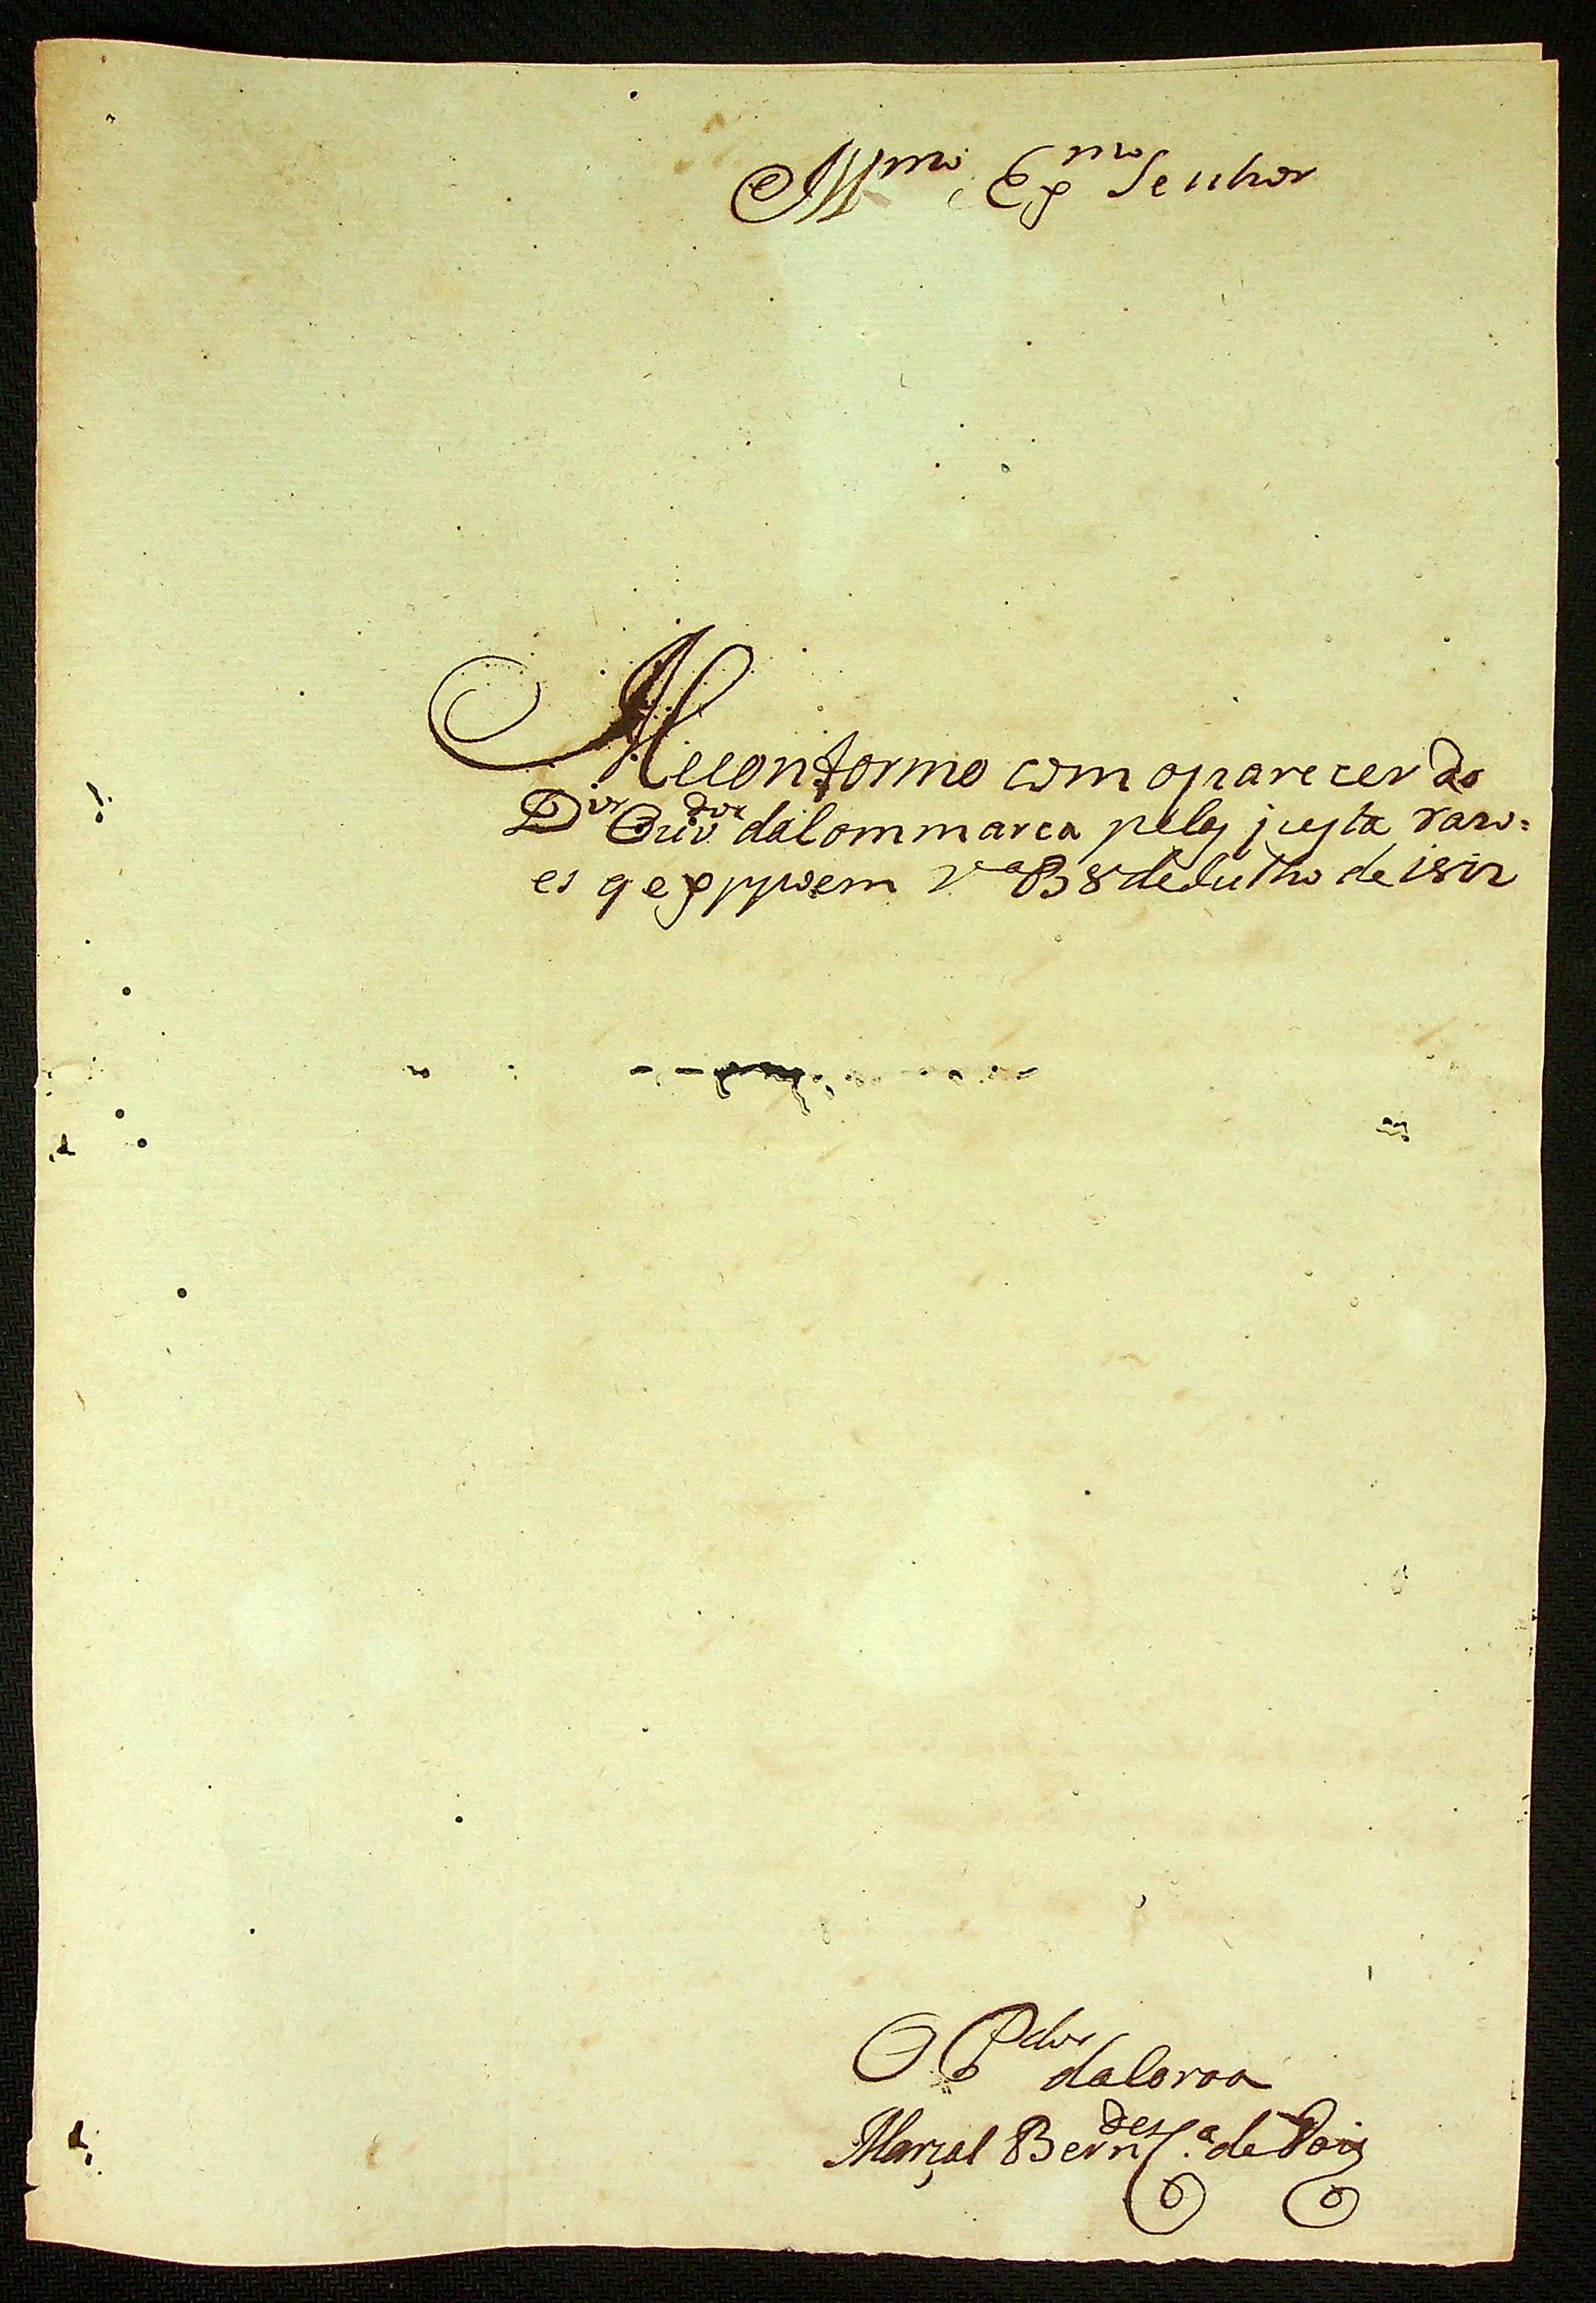 Illmo Exmo Senhor
Meconformo com oparecer do
Dor Ouvdor daCommarca pelas justa razo=
es q expoem Va Ba 8 deJulho de 1812
O Pdor
daCoroa
Marçal Berndes Ca de